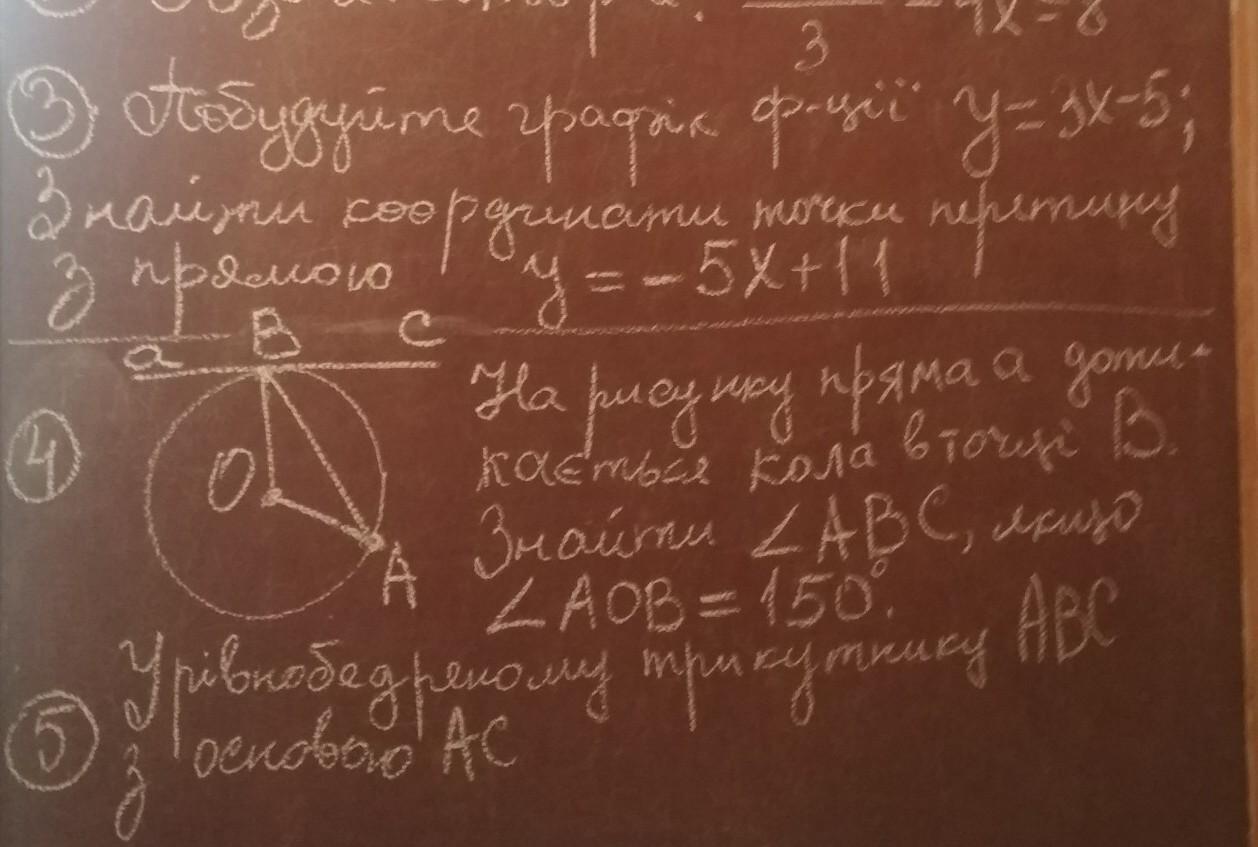 3 - 4x = 8
③ Побудуйте графік ф-ції y = 3x - 5;
Знайти координати точки перетину
з прямою y = - 5x + 11
a B C
④ На рисунку пряма a доти-
кається кола в точці B.
O
Знайти ∠ABC, якщо
A
∠AOB = 150°.
У рівнобедреному трикутнику ABC
⑤ з основою AC